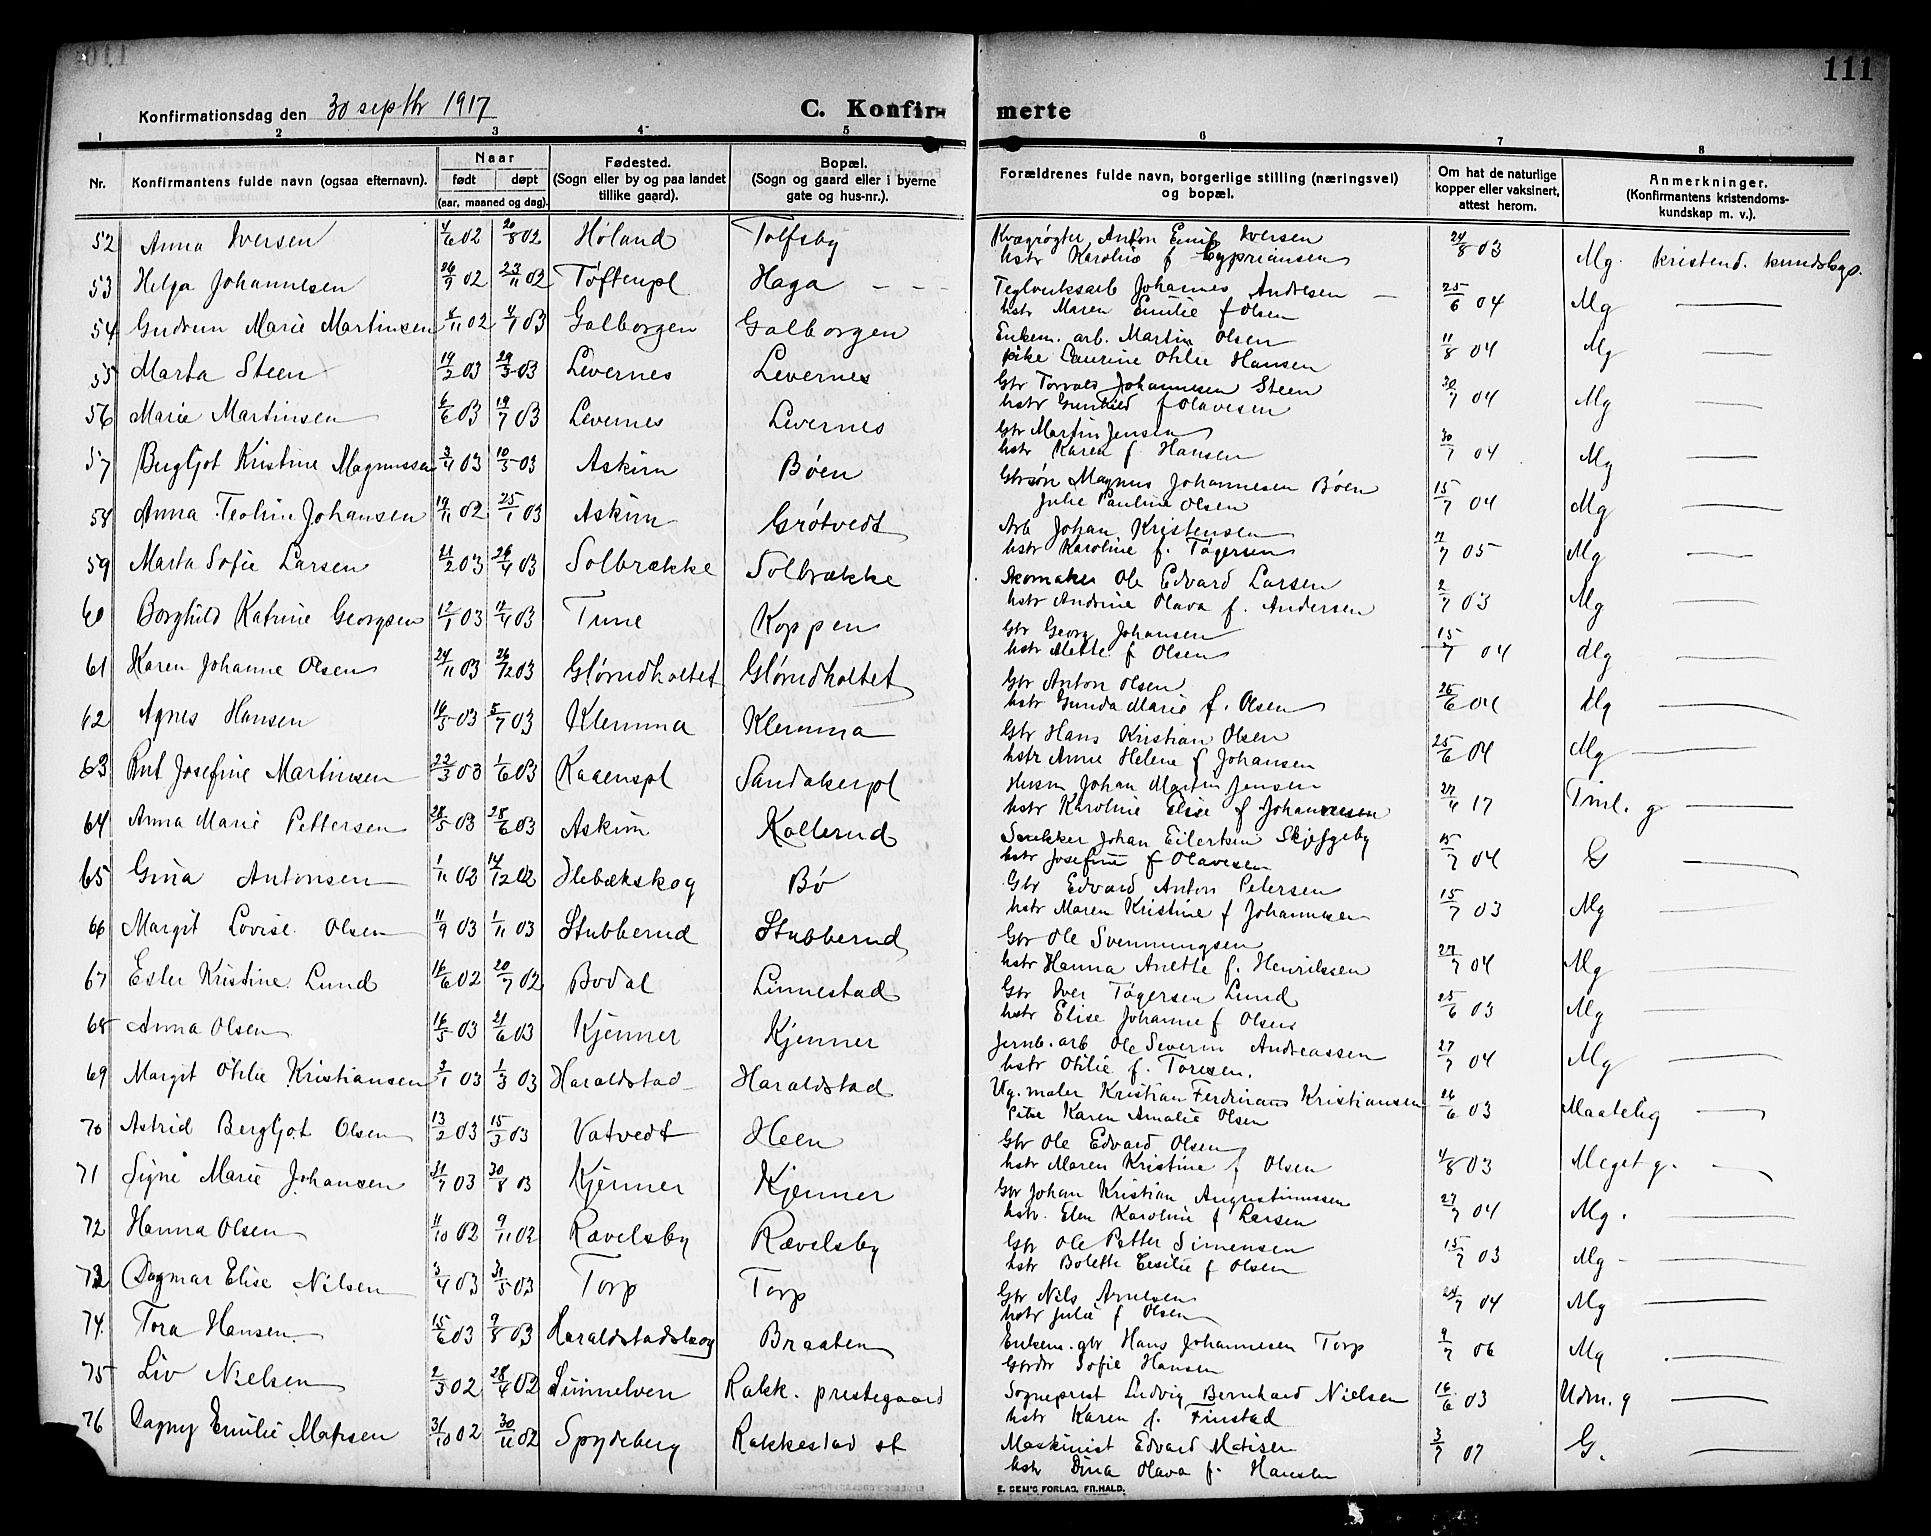 111
Konfirmationsdag den 30 septbr 1917
C. Konfir- merte
1 2 3 4 5 6 7 8
Nr. Konfirmantens fulde navn (ogsaa efternavn). Naar født døpt (aar, maaned og dag). Fødested. (Sogn eller by og paa landet tillike gaard). Bopæl. (Sogn og gaard eller i byerne gate og hus-nr.). Forældrenes fulde navn, borgerlige stilling (næringsvei) og bopæl. Om hat de naturlige kopper eller vaksinert, attest herom. Anmerkninger. (Konfirmantens kristendoms-kundskap m. v.).
52 Anna Iversen 4/6 02 20/8 02 Høland Tolfsby Kvægrøgter Anton Emil Iversen
hstr Karoline f Cypriansen 24/8 03 Mg. kristend. kundskap.
53 Helga Johannesen 26/9 02 23/11 02 Tøftenpl Haga Teglverksarb Johannes Andresen
hstr Maren Emilie f Olsen 25/6 04 Mg
54 Gudrun Marie Martinsen /11 02 4/1 03 Galborgen Galborgen Enkem. arb. Martin Olsen
pike Laurine Othlie Hansen 11/8 04 Mg
55 Marta Steen 19/2 03 29/3 03 Levernes Levernes Gbr Torvald Johannesen Steen
hstr Gunhild f Olavesen 30/7 04 Mg
56 Marie Martinsen 6/6 03 19/7 03 Levernes Levernes Gbr Martin Jensen
hstr Karen f. Hansen 30/7 04 Mg
57 Bergljot Kristine Magnussen 3/4 03 10/5 03 Askim Bøen Gbrsøn Magnus Johannesen Bøen
Julie Pauline Olsen 15/7 04 Mg
58 Anna Teoline Johansen 19/11 02 25/1 03 Askim Grøtvedt Arb Johan Kristensen
hstr Karoline f. Tøgersen 7/7 05 Mg
59 Marta Sofie Larsen 21/2 03 26/4 03 Solbrække Solbrække Skomaker Ole Edvard Larsen
hstr Andrine Olava f. Andersen 2/7 03 Mg
60 Borghild Katrine Georgsen 17/1 03 /4 03 Tune Koppen Gbr Georg Johansen
hstr Mette f Olsen 15/7 04 Mg
61 Karen Johanne Olsen 24/11 03 26/12 03 Glørudholtet Glørudholtet Gbr Anton Olsen
hstr Gunda Marie f. Olsen 26/6 04 Mg
62 Agnes Hansen 16/5 03 5/7 03 Klemma Klemma Gbr Hans Kristian Olsen
hstr Anne Helene f Johansen 25/6 04 Mg
63 Rut Josefine Martinsen 22/3 03 1/6 03 Kaaenspl Sandakerpl Husm Johan Martin Jensen
hstr Karoline Elise f Johannesen 27/4 17 Tml. g
64 Anna Marie Pettersen 28/5 03 28/6 03 Askim Kollerud Snekker Johan Eilertsen Skjefgeby
hstr Josefine f Olavesen 15/7 04 G
65 Gina Antonsen 1/11 02 14/12 02 Hebækskog Bø Gbr Edvard Anton Petersen
hstr Maren Kristine f Johannesen 15/7 03 Mg
66 Margit Lovise Olsen 11/9 03 1/11 03 Stubberud Stubberud Gbr Ole Svenningsen
hstr Hanna Anette f. Henriksen 27/7 04 Mg
67 Ester Kristine Lund 16/6 02 20/7 02 Bodal Linnestad Gbr Iver Tøgersen Lund
hstr Elise Johanne f Olsen 25/6 03 Mg
68 Anna Olsen 16/5 03 21/6 03 Kjenner Kjenner Jernb. arb Ole Severin Andreassen
hstr Othilie f. Toresen. 27/7 04 Mg
69 Margit Othlie Kristiansen 3/1 03 1/3 03 Haraldstad Haraldstad Ug. maler Kristian Ferdinand Kristiansen
Pike Karen Amalie Olsen 16/6 03 Maatelig
70 Astrid Bergljot Olsen 13/2 03 15/3 03 Vatvedt Heen Gbr Ole Edvard Olsen
hstr Maren Kristine f Olsen 4/8 03 Meget g.
71 Signe Marie Johansen 31/7 03 30/8 03 Kjenner Kjenner Gbr Johan Kristian Augustinussen
hstr. Elen Karoline f Larsen 27/7 04 Mg.
72 Hanna Olsen 11/10 02 9/11 02 Rævelsby Rævelsby Gbr Ole Petter Simensen
hstr Bolette Cesilie f Olsen 15/7 03 Mg
73 Dagmar Elise Nilsen 3/4 03 31/5 03 Torp Torp Gbr Nils Arnesen
hstr Julie f Olsen 24/7 04 Mg
74. Tora Hansen 15/6 03 9/8 03 Haraldstadskog Braaten Enkem. gbr Hans Johannesen Torp
Gbrdtr Sofie Hansen 9/7 06 Mg
75 Liv Nielsen 2/3 02 28/4 02 Sunnelven Rakk. prestegaard Sogneprest Ludvig Bernhard Nielsen
hstr Karen f. Finstad 16/6 03 Udm. g
76 Dagny Emilie Matisen 31/10 02 30/11 02 Spydeberg Rakkestad st Maskinist Edvard Matisen
hstr Dina Olava f. Hansen 3/7 07 G.
E. SEM'S FORLAG, FR.HALD.